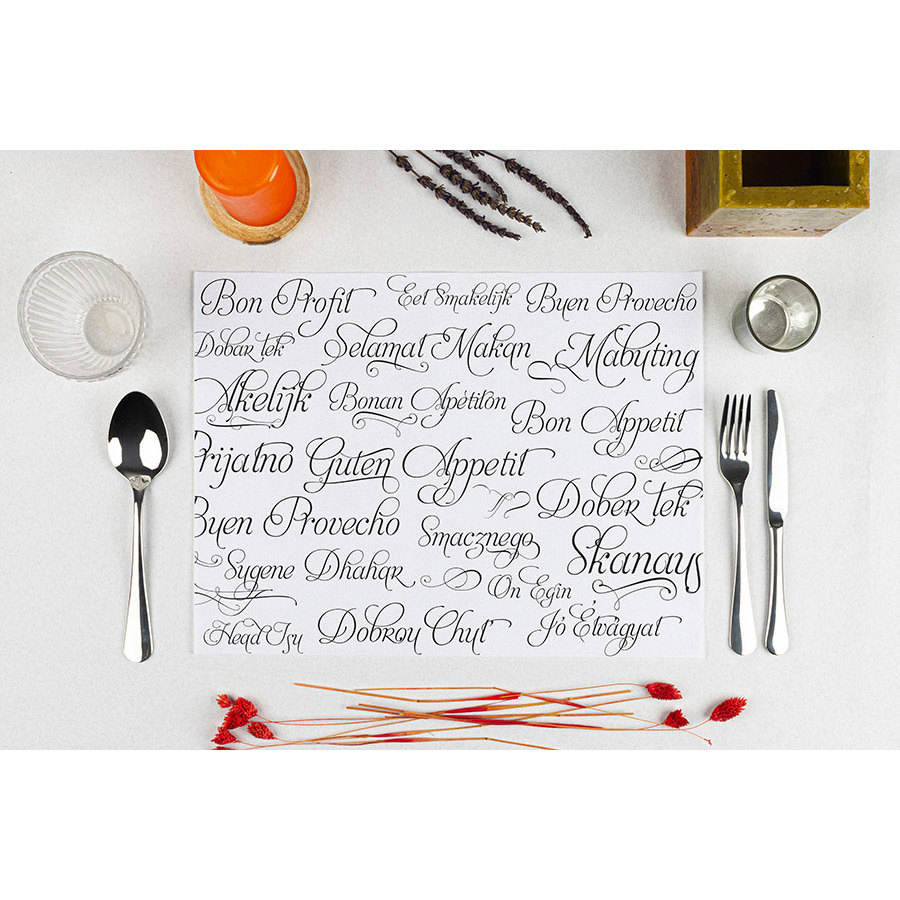 Bon Profit Eet Smakelijk Buen Provecho
Dobar tek Selamat Makan Mabuting
Akelijk Bonan Apétiton Bon Appetit
Prijatno Guten Appetit Dober tek
Buen Provecho Smacznego Skanaus
Sugene Dhahar On Egin
Head Isu Dobrou Chut' Jó Étvágyat